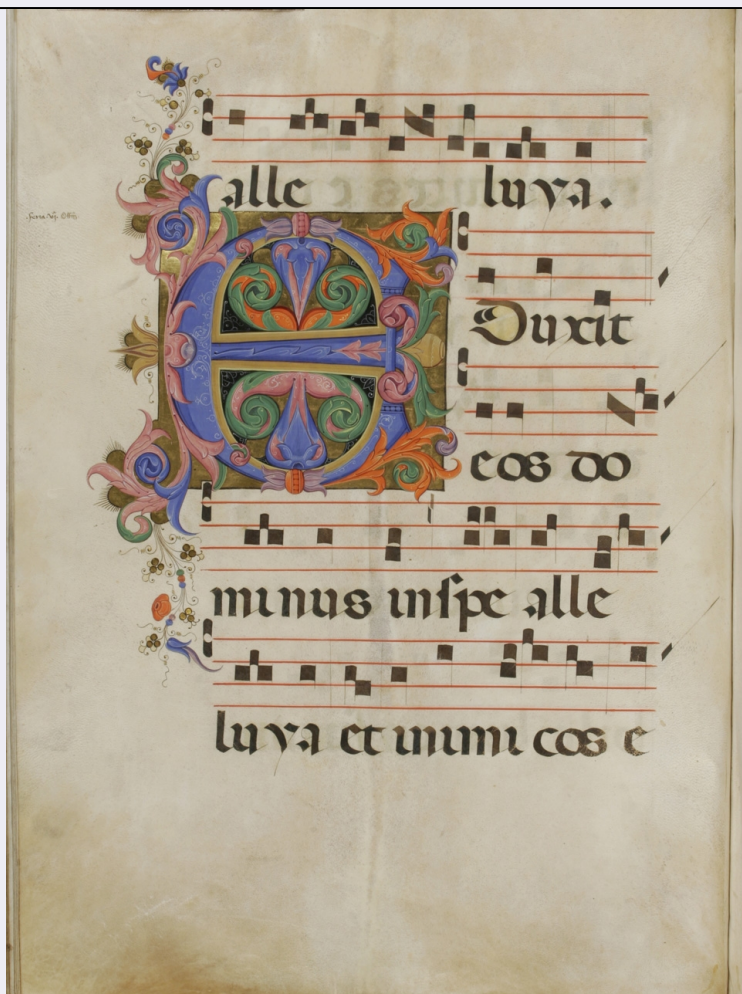 alle luya.
E
Duxit
eos do
minus inspe alle
luya et inimi cos e